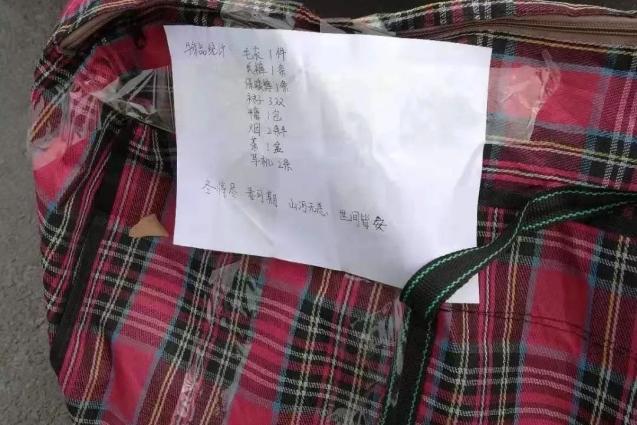 物品统计 毛衣 1件
长裤 1条
保暖裤 1条
袜子 3双
糖 1包
烟 2条半
茶 1盒
耳机 2条
冬将尽 春可期 山河无恙, 世间皆安